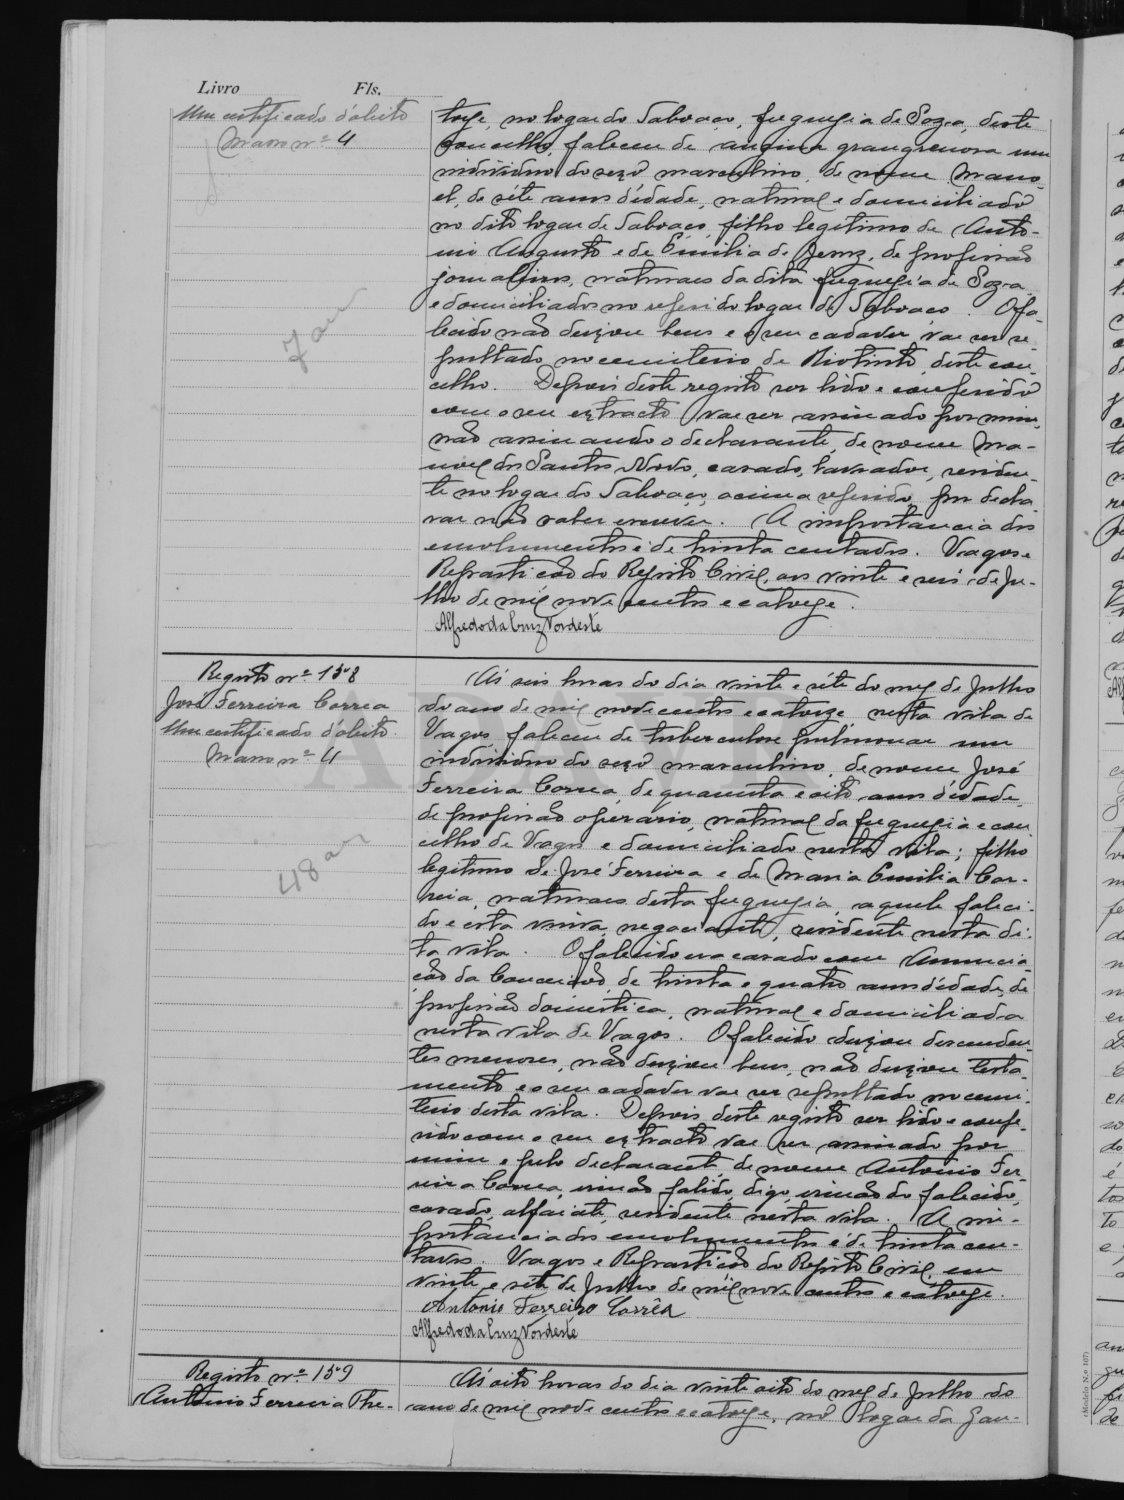 Livro Fls.
Um certificado d'óbito
Masso nº 4
torze, no logar do Saboaco, freguezia de Soza, deste
concelho, faleceu de angina grangrenosa um
individuo do sexo masculino, de nome Mano-
el, de séte annos d'edade, natural e domiciliado
no dito logar de Saboaco, filho legitimo de Anto-
nio Augusto e de Emilia de Jesus, de profissão
jornaleiros, naturaes da dita freguezia de Soza
e domiciliados no referido logar de Saboaco. O fa-
lecido não deixou bens e o seu cadaver vae ser se-
pultado no cemiterio de Riotinto, deste con-
celho. Depois deste registo ser lido e conferido
com o seu extracto vae ser assinado por mim,
não assinando o declarante, de nome Ma-
noel dos Santos Novo, casado, lavrador, residen-
te no logar do Saboaco, acima referido, por decla-
rar não saber escrever. A importancia dos
emolumentos é de trinta centavos. Vagos e
Repartição do Registo Civil, aos vinte e seis de Ju-
lho de mil nove centos e catorze.
Alfredo da Cruz Nordeste
7 an
Registo nº 158
José Ferreira Correa
Um certificado d'óbito
Masso nº 4
48 an
Ás seis horas do dia vinte e séte do mez de Julho
do ano de mil nove centos e catorze, nesta vila de
Vagos faleceu de tuberculose pulmonar um
individuo do sexo masculino, de nome José
Ferreira Correa, de quarenta e oito annos d'edade,
de profissão operario, natural da freguezia e con-
celho de Vagos e domiciliado nesta vila; filho
legitimo de José Ferreira e de Maria Emilia Cor-
reia, naturaes desta freguezia, aquele faleci-
do e esta viuva, negociante, residente nesta di-
ta vila. O falecido era casado com Annuncia-
ção da Conceição, de trinta e quatro annos d'edade, de
profissão domestica, natural e domiciliada
nesta vila de Vagos. O falecido deixou descenden-
tes menores, não deixou bens, não deixou testa-
mento e o seu cadaver vae ser sepultado no cemi-
terio desta vila. Depois deste registo ser lido e confe-
rido com o seu extracto vae ser assinado por
mim e pelo declarante, de nome Antonio Fer-
reira Correa, irmão falido, digo, irmão do falecido,
casado, alfaiate, residente nesta vila. A im-
portancia dos emolumentos é de trinta cen-
tavos. Vagos e Repartição do Registo Civil, em
vinte e séte de Julho de mil nove centos e catorze.
Antonio Ferreiro Corrêa
Alfredo da Cruz Nordeste
Registo nº 159
Antonio Ferreira The-
Ás oito horas do dia vinte oito do mez de Julho do
ano de mil nove centos e catorze, no logar da Gan-
(Modelo N.o 107)